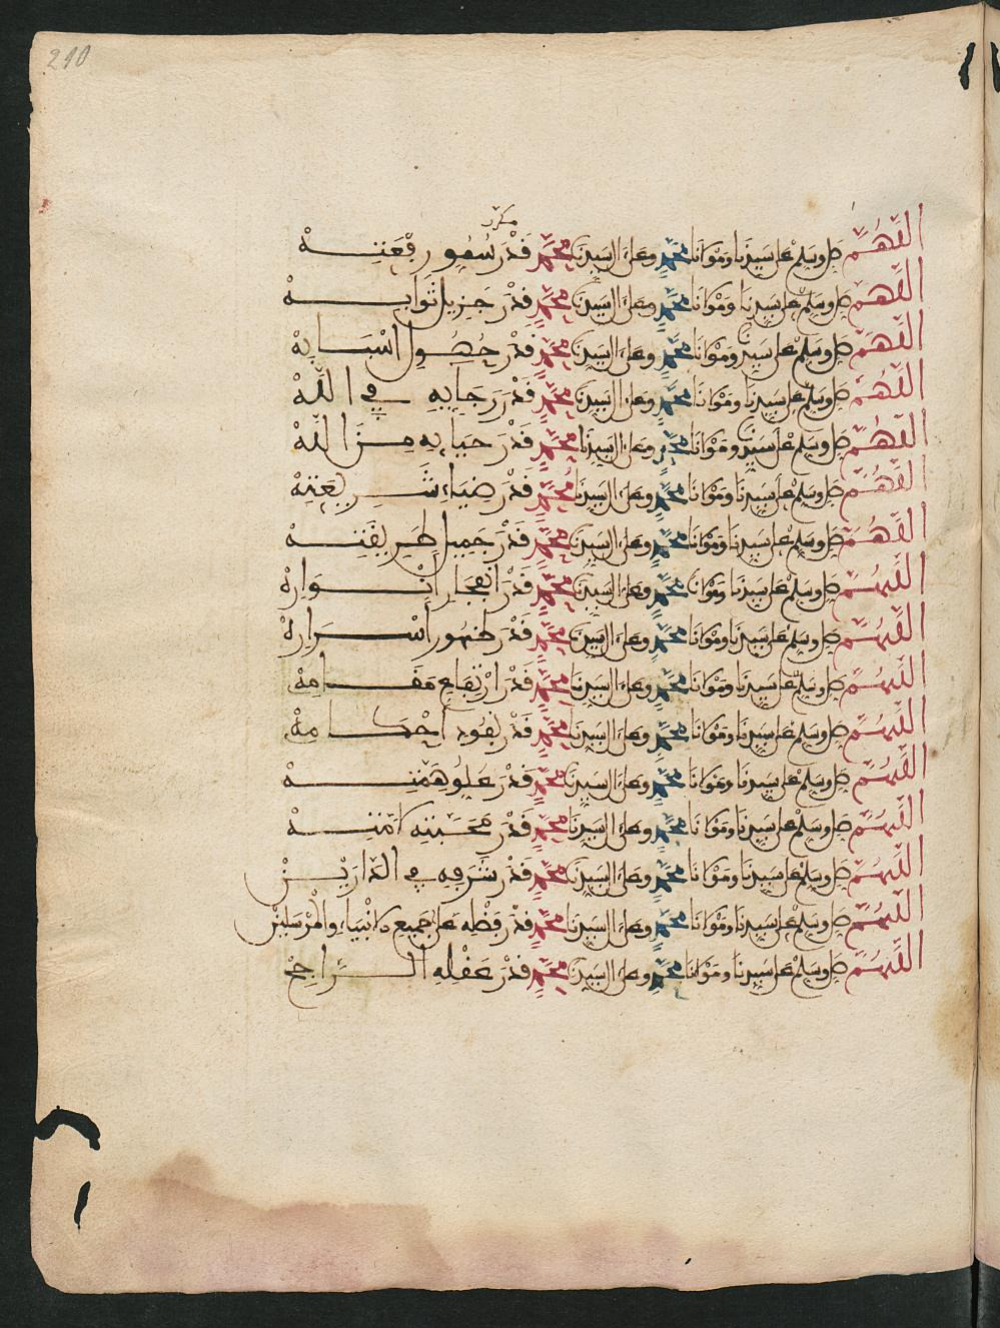 210
مكرر
اللهم صل وسلم على سيدنا ومولانا محمد وعلى ال سيدنا محمد قدر سمو رفعته
اللهم صل وسلم على سيدنا ومولانا محمد وعلى ال سيدنا محمد قدر جزيل ثوابه
اللهم صل وسلم على سيدنا ومولانا محمد وعلى ال سيدنا محمد قدر حصول اسبابه
اللهم صل وسلم على سيدنا ومولانا محمد وعلى ال سيدنا محمد قدر رجايه في الله
اللهم صل وسلم على سيدنا ومولانا محمد وعلى ال سيدنا محمد قدر حيايه من الله
اللهم صل وسلم على سيدنا ومولانا محمد وعلى ال سيدنا محمد قدر ضياء شريعته
اللهم صل وسلم على سيدنا ومولانا محمد وعلى ال سيدنا محمد قدر جميل طريقته
اللهم صل وسلم على سيدنا ومولانا محمد وعلى ال سيدنا محمد قدر انفجار انواره
اللهم صل وسلم على سيدنا ومولانا محمد وعلى ال سيدنا محمد قدر ظهور اسراره
اللهم صل وسلم على سيدنا ومولانا محمد وعلى ال سيدنا محمد قدر ارتفاع مقامه
اللهم صل وسلم على سيدنا ومولانا محمد وعلى ال سيدنا محمد قدر نفوذ احكامه
اللهم صل وسلم على سيدنا ومولانا محمد وعلى ال سيدنا محمد قدر علو همته
اللهم صل وسلم على سيدنا ومولانا محمد وعلى ال سيدنا محمد قدر محبته لامته
اللهم صل وسلم على سيدنا ومولانا محمد وعلى ال سيدنا محمد قدر شرفه في الدارين
اللهم صل وسلم على سيدنا ومولانا محمد وعلى ال سيدنا محمد قدر فضله على جميع الانبياء والمرسلين
اللهم صل وسلم على سيدنا ومولانا محمد وعلى ال سيدنا محمد قدر عقله الراجح